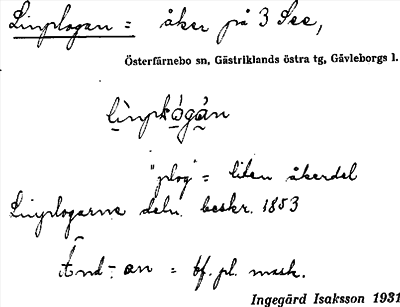 Linplogan = åker på 3 See,
Österfärnebo sn, Gästriklands östra tg, Gävleborgs l.
"plog" = liten åkerdel
Linplogarne deln. beskr. 1853
Änd. -an = bf. pl. mask.
Ingegärd Isaksson 1931